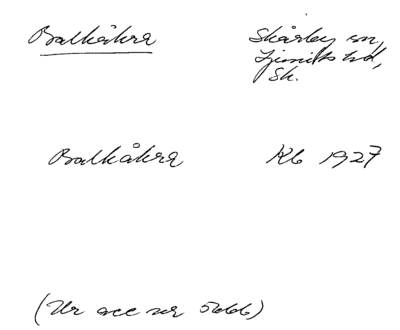 Balkåkra Skårby sn,
Ljunits hd,
Sk.
Balkåkra Kb 1927
(Ur acc nr 5266)